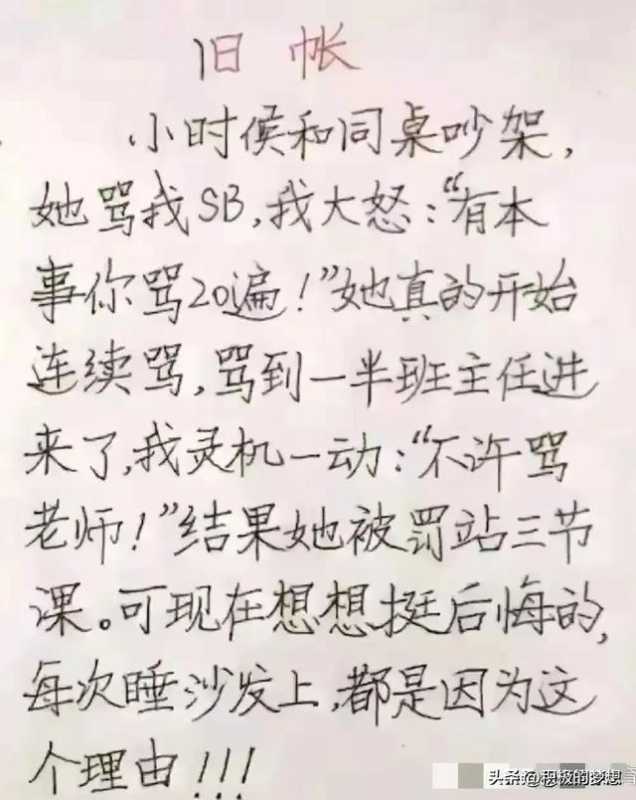 旧帐
小时候和同桌吵架,
她骂我SB,我大怒:“有本
事你骂20遍!”她真的开始
连续骂,骂到一半班主任进
来了,我灵机一动:“不许骂
老师!”结果她被罚站三节
课。可现在想想挺后悔的,
每次睡沙发上,都是因为这
个理由!!!
头条@积极的梦想